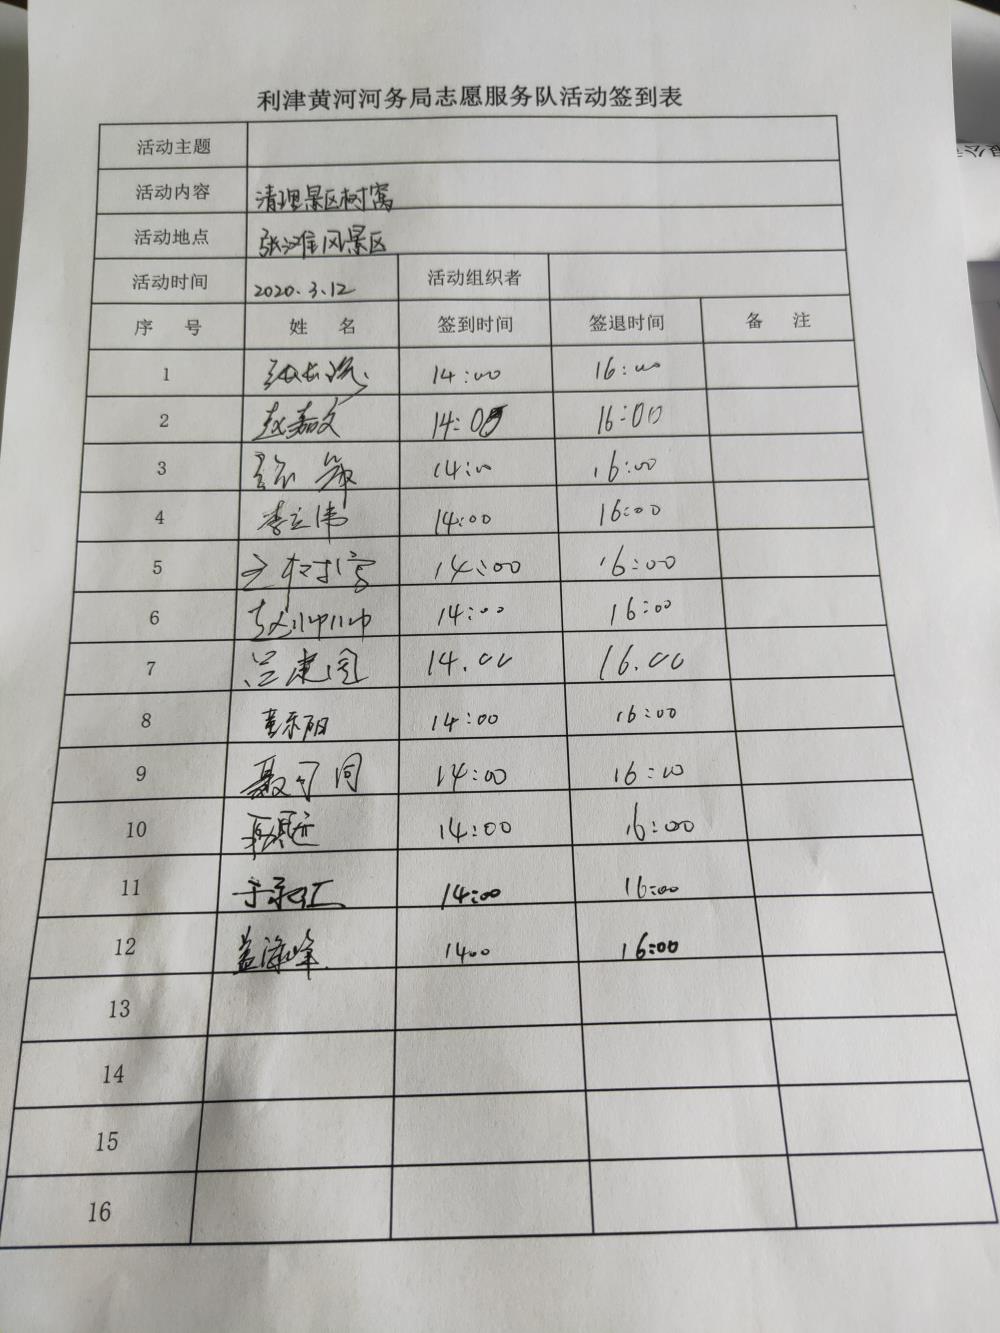 利津黄河河务局志愿服务队活动签到表
活动主题
活动内容 清理景区树窝
活动地点 张滩风景区
活动时间 2020.3.12 活动组织者
序 号 姓 名 签到时间 签退时间 备 注
1 14:00 16:00
2 赵嘉文 14:00 16:00
3 14:00 16:00
4 李立伟 14:00 16:00
5 14:00 16:00
6 赵帅帅 14:00 16:00
7 兰建国 14.00 16.00
8 14:00 16:00
9 聂可同 14:00 16:00
10 14:00 16:00
11 于永红 14:00 16:00
12 盖海峰 1400 16:00
13
14
15
16